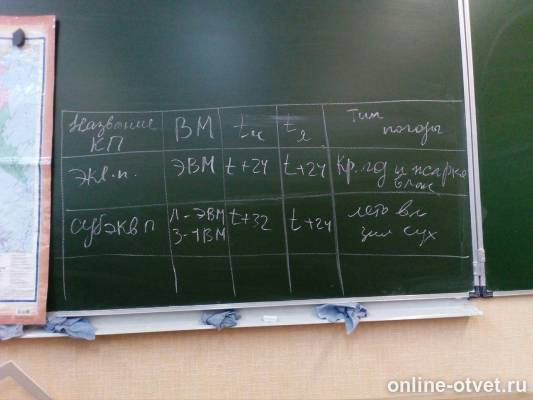 Название КП
ВМ
tи
tя
Тип погоды
экв.п.
ЭВМ
t+24
t+24
Кр.год и жарко влаж
субэкв п
Л-ЭВМ
З-ТВМ
t+32
t+24
лето вл
зим сух
online-otvet.ru